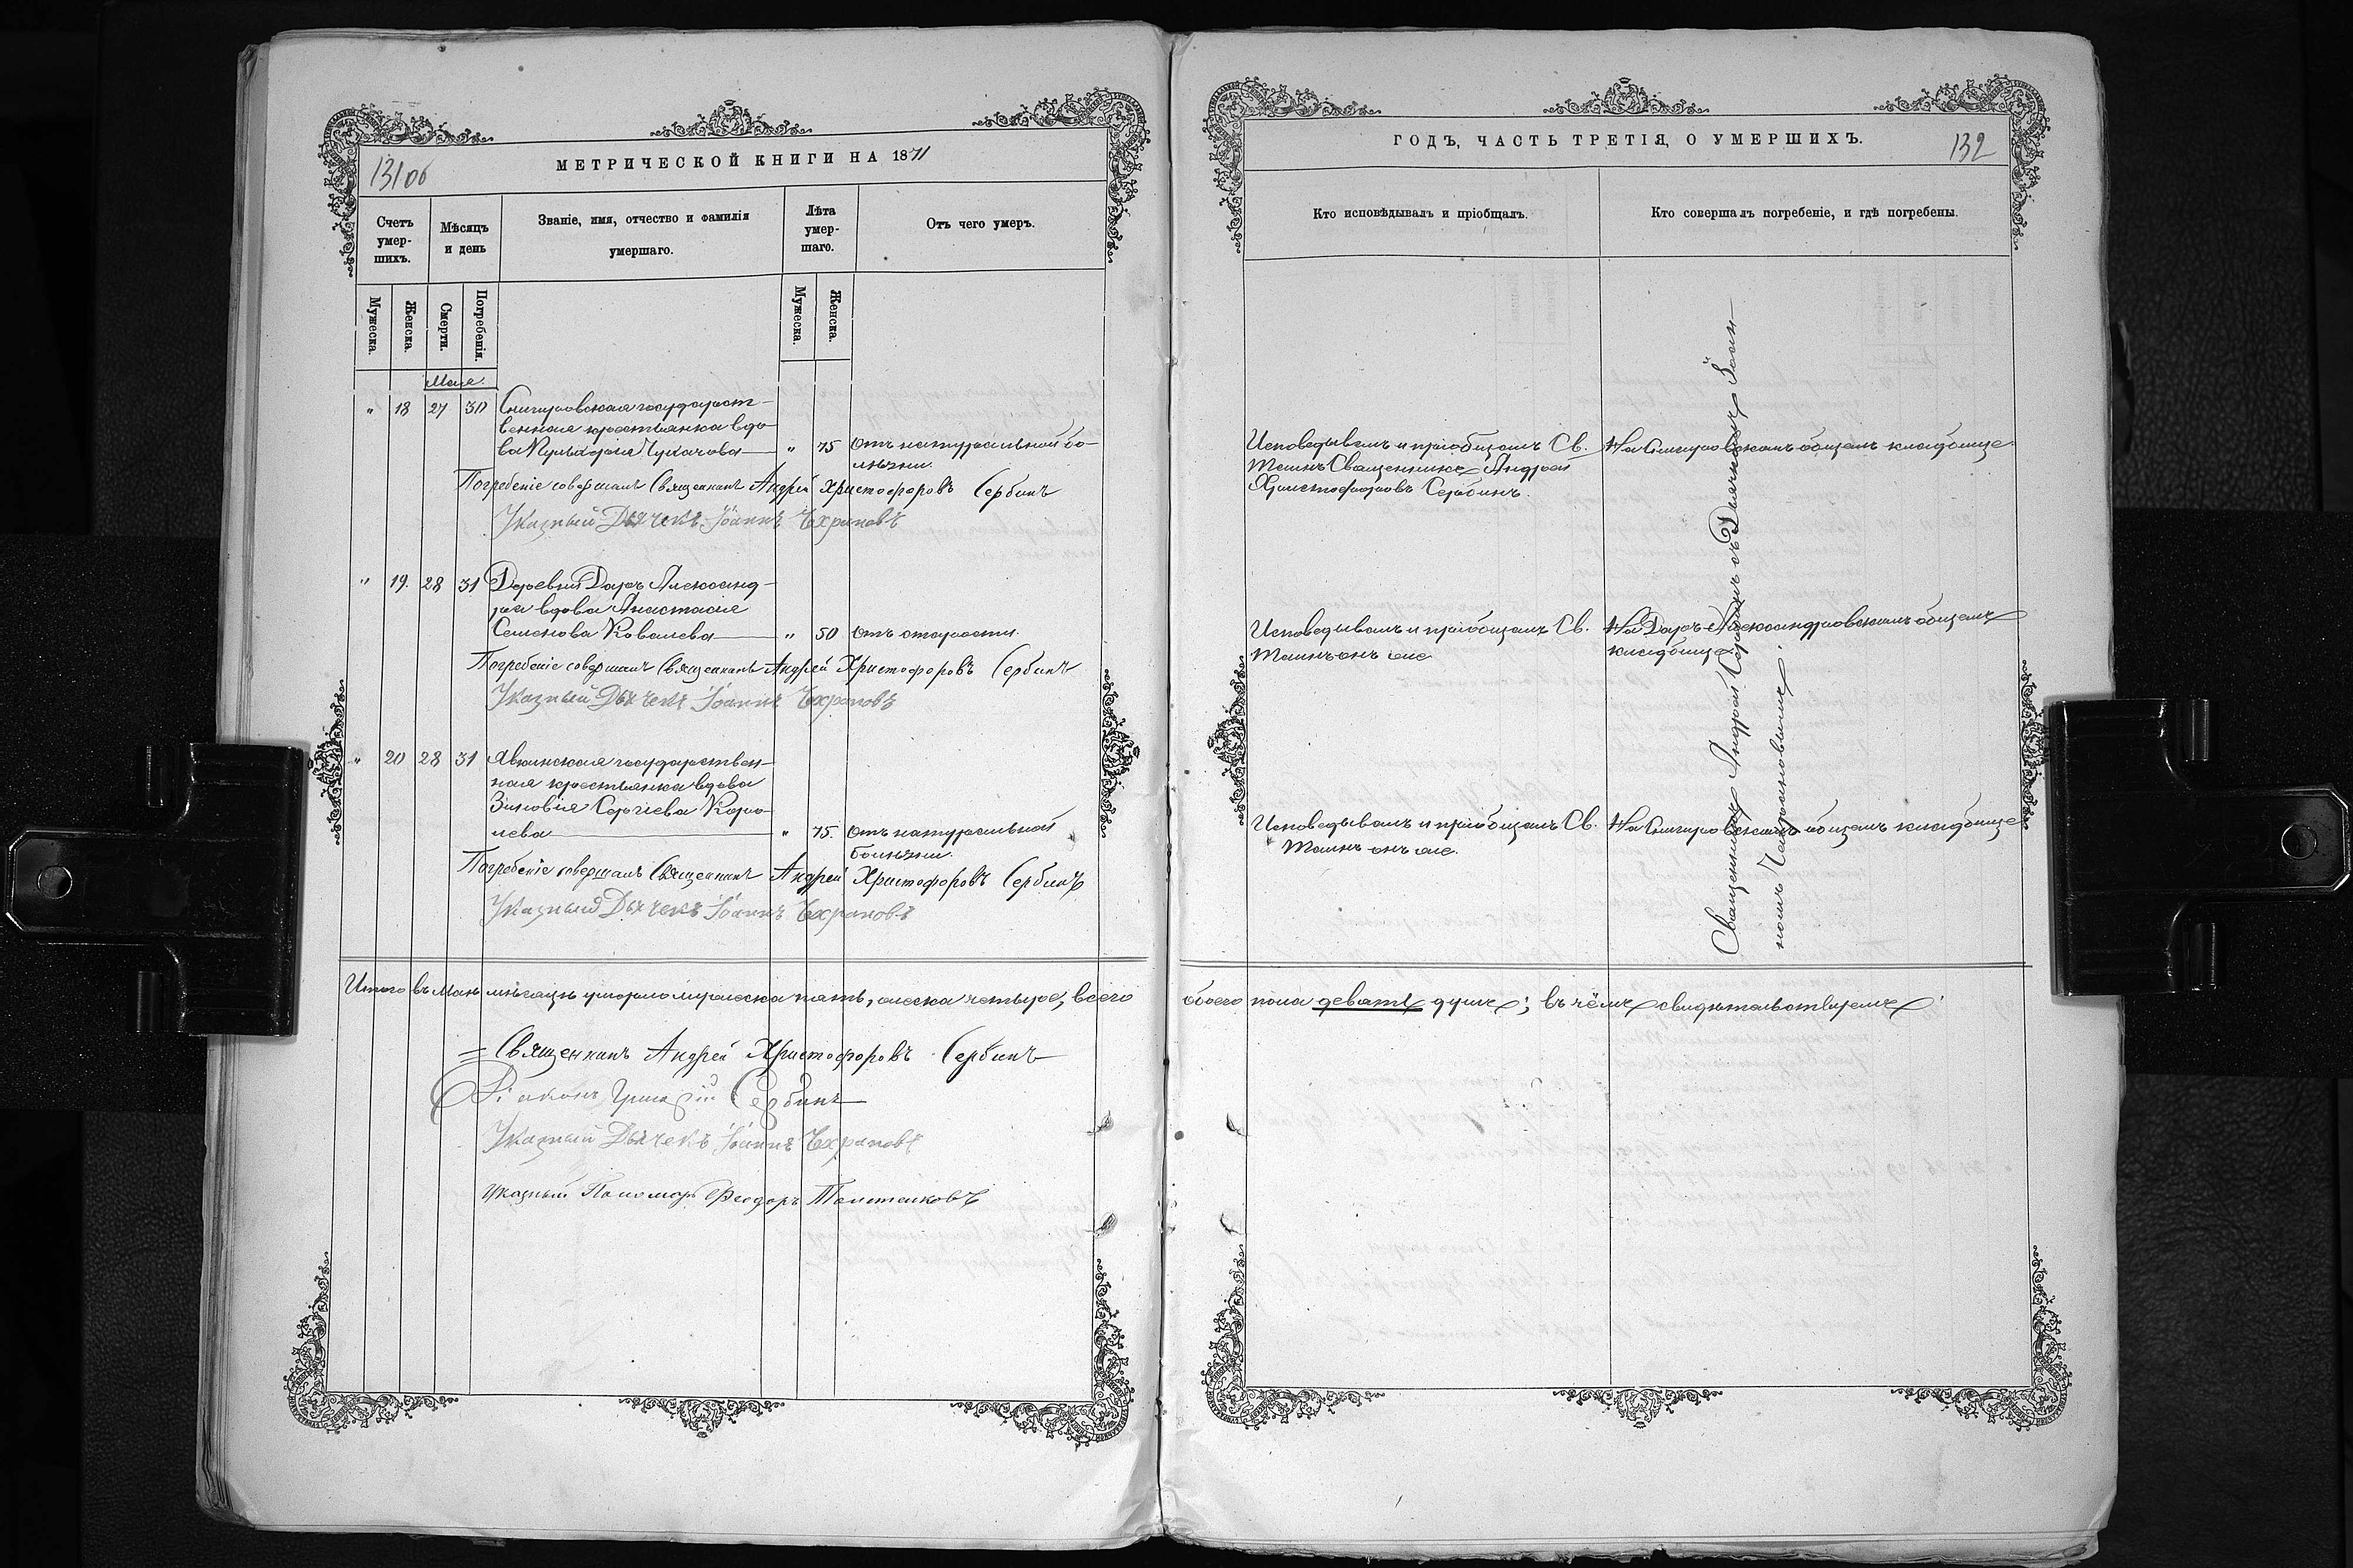 131об
МЕТРИЧЕСКОЙ КНИГИ НА 1871
Счетъ умер-шихъ.
Мѣсяцъ и день
Званіе, имя, отчество и фамилія умершаго.
Лѣта умер-шаго.
Отъ чего умеръ.
Мужеска.
Женска.
Смерти.
Погребенія.
Мужеска.
Женска.
Мая.
" 18 27 30 Снигировская государст-
венная крестьянка вдо-
ва Пульхерія Чукачова " 75 Отъ натуральной бо-
лѣзни.
Погребеніе совершалъ Священникъ Андрей Христофоровъ Сербинъ
Указный Дьячекъ Іоаннъ Чхрановъ
" 19. 28 31 Деревни Даръ Александ-
ра вдова Анастасія
Семенова Ковалева " 50 Отъ старости.
Погребеніе совершалъ Священникъ Андрей Христофоровъ Сербинъ
Указный Дьячекъ Іоаннъ Чхрановъ
" 20 28 31 Явкинская государствен-
ная крестьянка вдова
Зиновія Сергіева Коро-
лева " 75. Отъ натуральной
болѣзни.
Погребеніе совершалъ Священникъ Андрей Христофоровъ Сербинъ
Указный Дьячекъ Іоаннъ Чхрановъ
Итого въ Маѣ мѣсяцѣ умерло мужеска пять, женска четыре, всего
Священникъ Андрей Христофоровъ Сербинъ
Діаконъ Григорій Сербинъ
Указный Дьячекъ Іоаннъ Чхрановъ
Указный Пономарь Феодоръ
ГОДЪ, ЧАСТЬ ТРЕТІЯ, О УМЕРШИХЪ.
132
Кто исповѣдывалъ и пріобщалъ.
Кто совершалъ погребеніе, и гдѣ погребены.
Исповедывалъ и пріобщалъ Св.
Таинъ Священникъ Андрей
Христофоровъ Сербинъ.
На Снигировскомъ общемъ кладбище
Исповедывалъ и пріобщалъ Св.
Таинъ онъ же
На Даръ-Александровскомъ общемъ
кладбище.
Исповедывалъ и пріобщалъ Св.
Таинъ онъ же.
На Снигировскомъ общемъ кладбище
Священникъ Андрей Сербинъ съ Дьячкомъ Іоан-
номъ
обоего пола девять душъ; въ чёмъ свидѣтельствуемъ